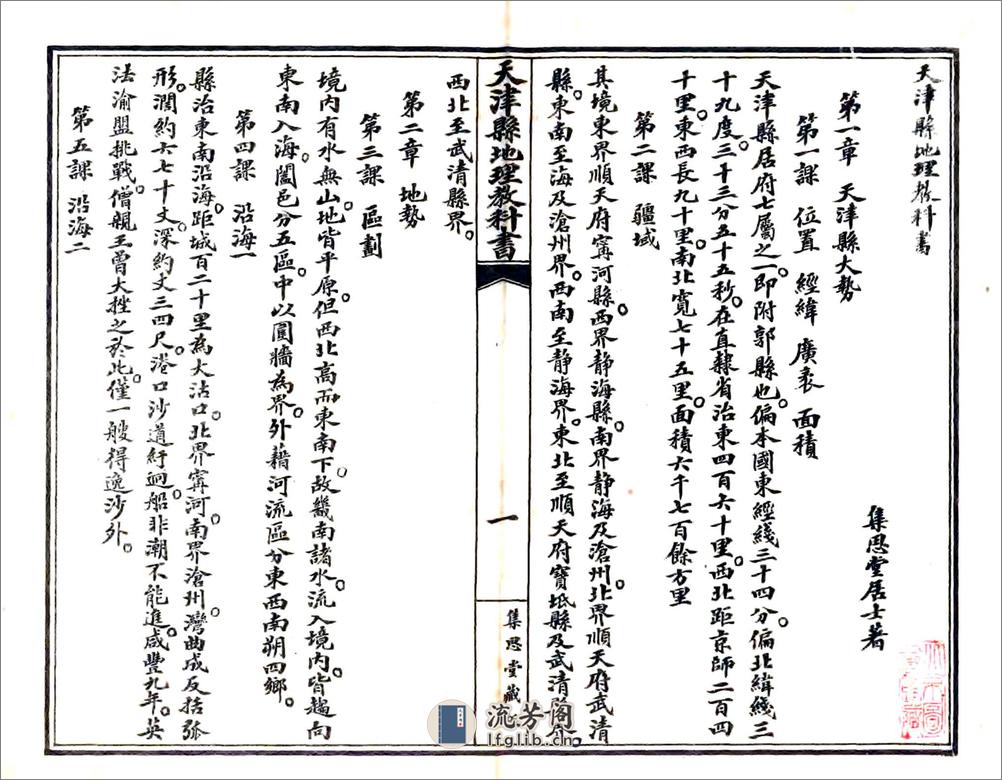 天津縣地理教科書
集思堂居士著
第一章 天津縣大勢
第一課 位置 經緯 廣袤 面積
天津縣居府七屬之一。即附郭縣也。偏本國東經綫三十四分。偏北緯綫三
十九度。三十三分五十五秒。在直隸省治東四百六十里。西北距京師二百四
十里。東西長九十里。南北寬七十五里。面積六千七百餘方里
第二課 疆域
其境東界順天府寗河縣。西界靜海縣。南界靜海及滄州。北界順天府武清
縣。東南至海及滄州界。西南至靜海界。東北至順天府寶坻縣及武清縣界。
天津縣地理教科書
一
集思堂藏
西北至武清縣界。
第二章 地勢
第三課 區劃
境內有水無山。地皆平原。但西北高而東南下。故畿南諸水。流入境內。皆趨向
東南入海。闔邑分五區。中以圍牆為界。外藉河流區分東西南朔四鄉。
第四課 沿海一
縣治東南沿海。距城百二十里為大沽口。北界寗河。南界滄州。灣曲成反括弧
形。濶約六七十丈。深約丈三四尺。港口沙道紆迴。船非潮不能進。咸豐九年。英
法渝盟挑戰。僧親王曾大挫之於此。僅一艘得逸沙外。
第五課 沿海二
流芳阁
lfglib.cn